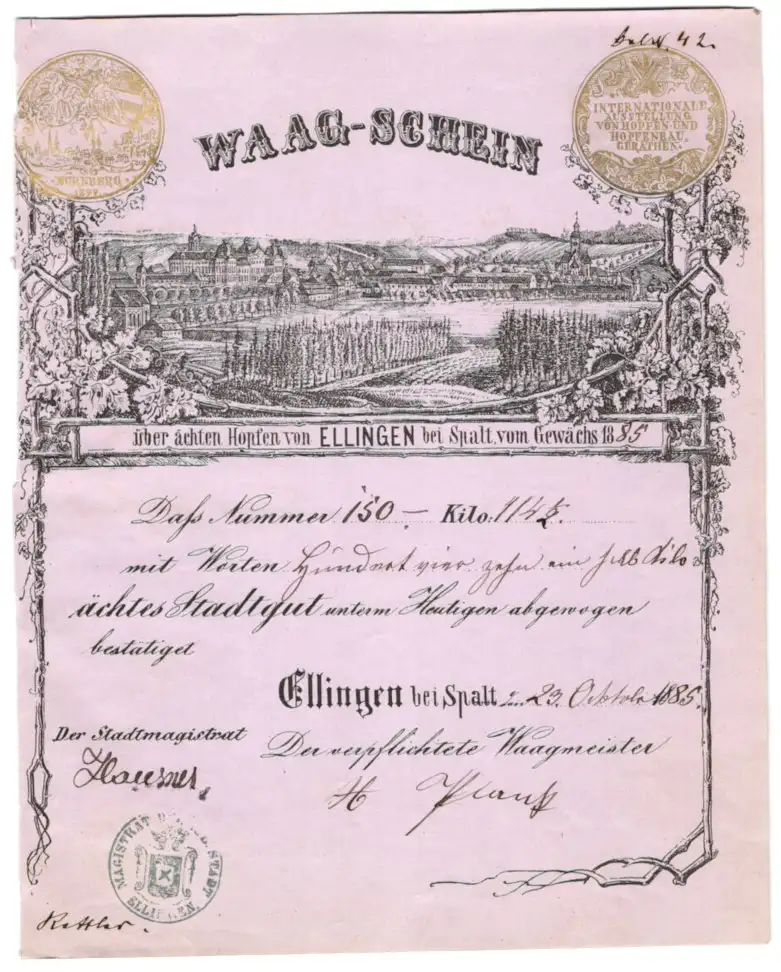 42.
WAAG-SCHEIN
NÜRNBERG
INTERNATIONALE
AUSSTELLUNG
VON HOPFEN UND
HOPFENBAU
GERÄTHEN.
über ächten Hopfen von ELLINGEN bei Spalt, vom Gewächs 1885
Daß Nummer 150 – Kilo: 114½
mit Worten Hundert vier zehn ein halb Kilo
ächtes Stadtgut unterm Heutigen abgewogen
bestätiget
Ellingen bei Spalt 23. Oktobr 1885.
Der Stadtmagistrat
Der verpflichtete Waagmeister
H
MAGISTRAT STADT
ELLINGEN.